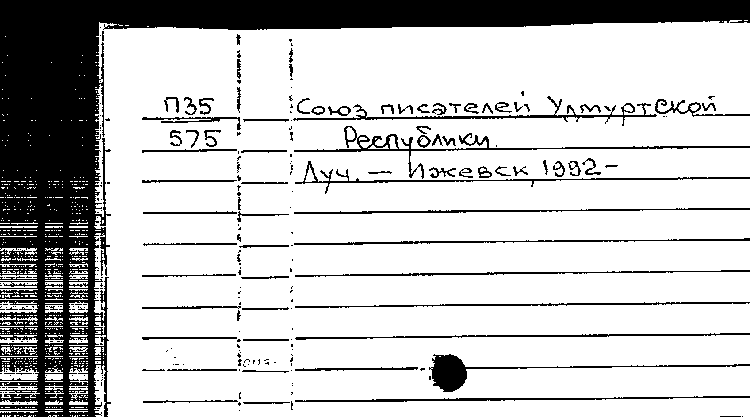 П35 Союз писателей Удмуртской
575 Республики.
Луч. — Ижевск, 1992-